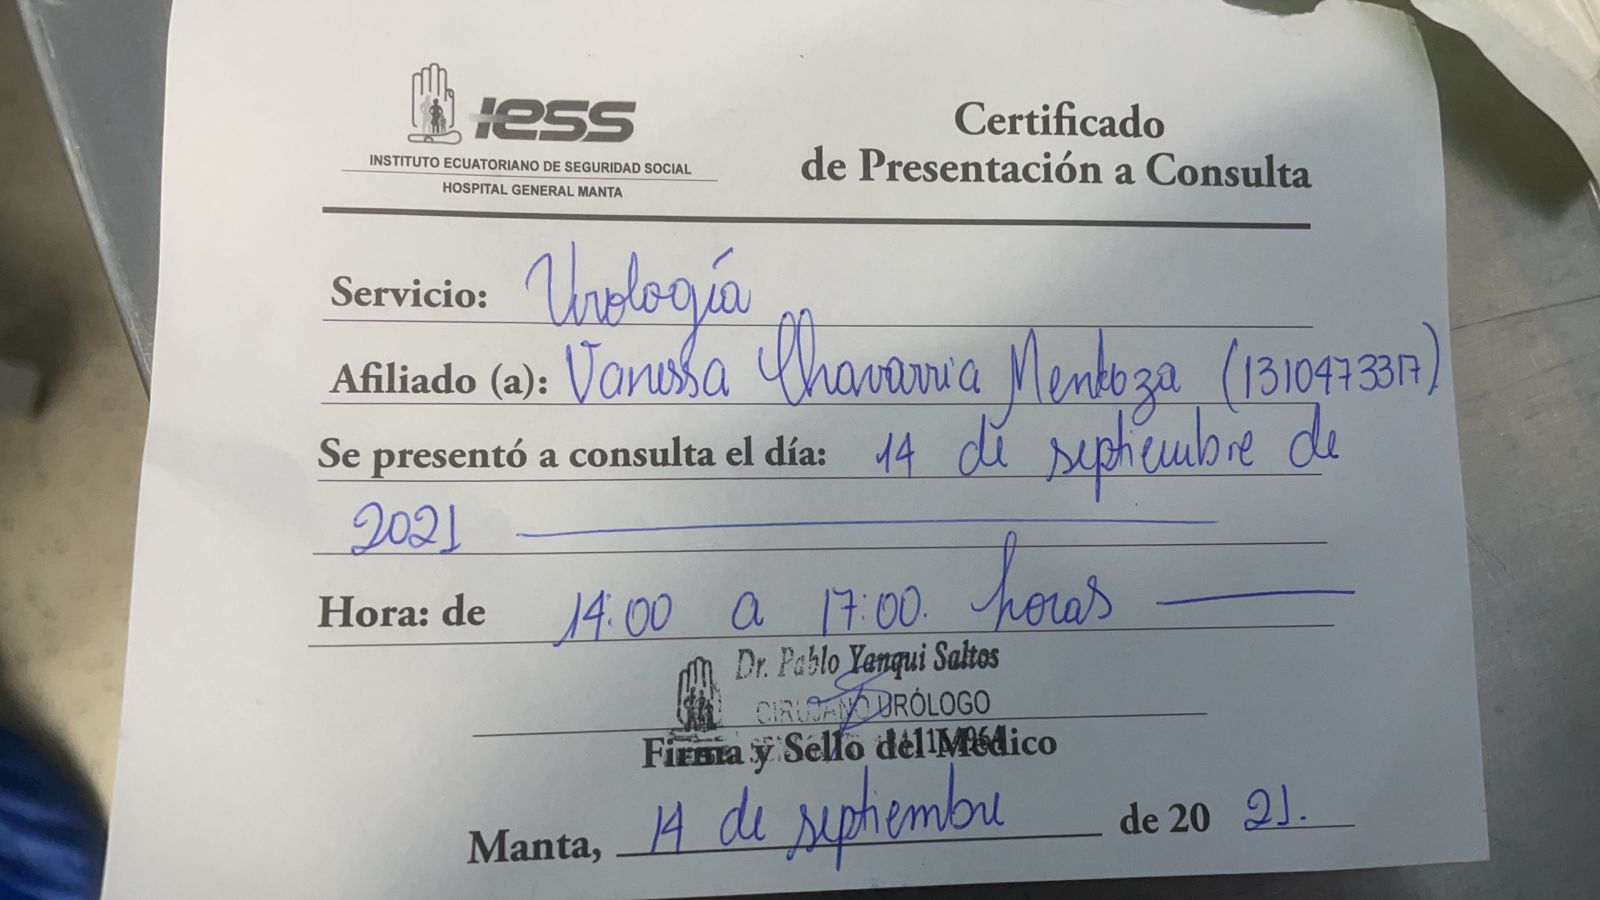 IESS
INSTITUTO ECUATORIANO DE SEGURIDAD SOCIAL
HOSPITAL GENERAL MANTA
Certificado
de Presentación a Consulta
Servicio: Urología
Afiliado (a): Vanessa Chavarria Mendoza (1310473317)
Se presentó a consulta el día: 14 de septiembre de
2021
Hora: de 14:00 a 17:00. horas
Dr. Pablo Yanqui Saltos
CIRUJANO URÓLOGO
Firma y Sello del Médico
Manta, 14 de septiembre de 20 21.